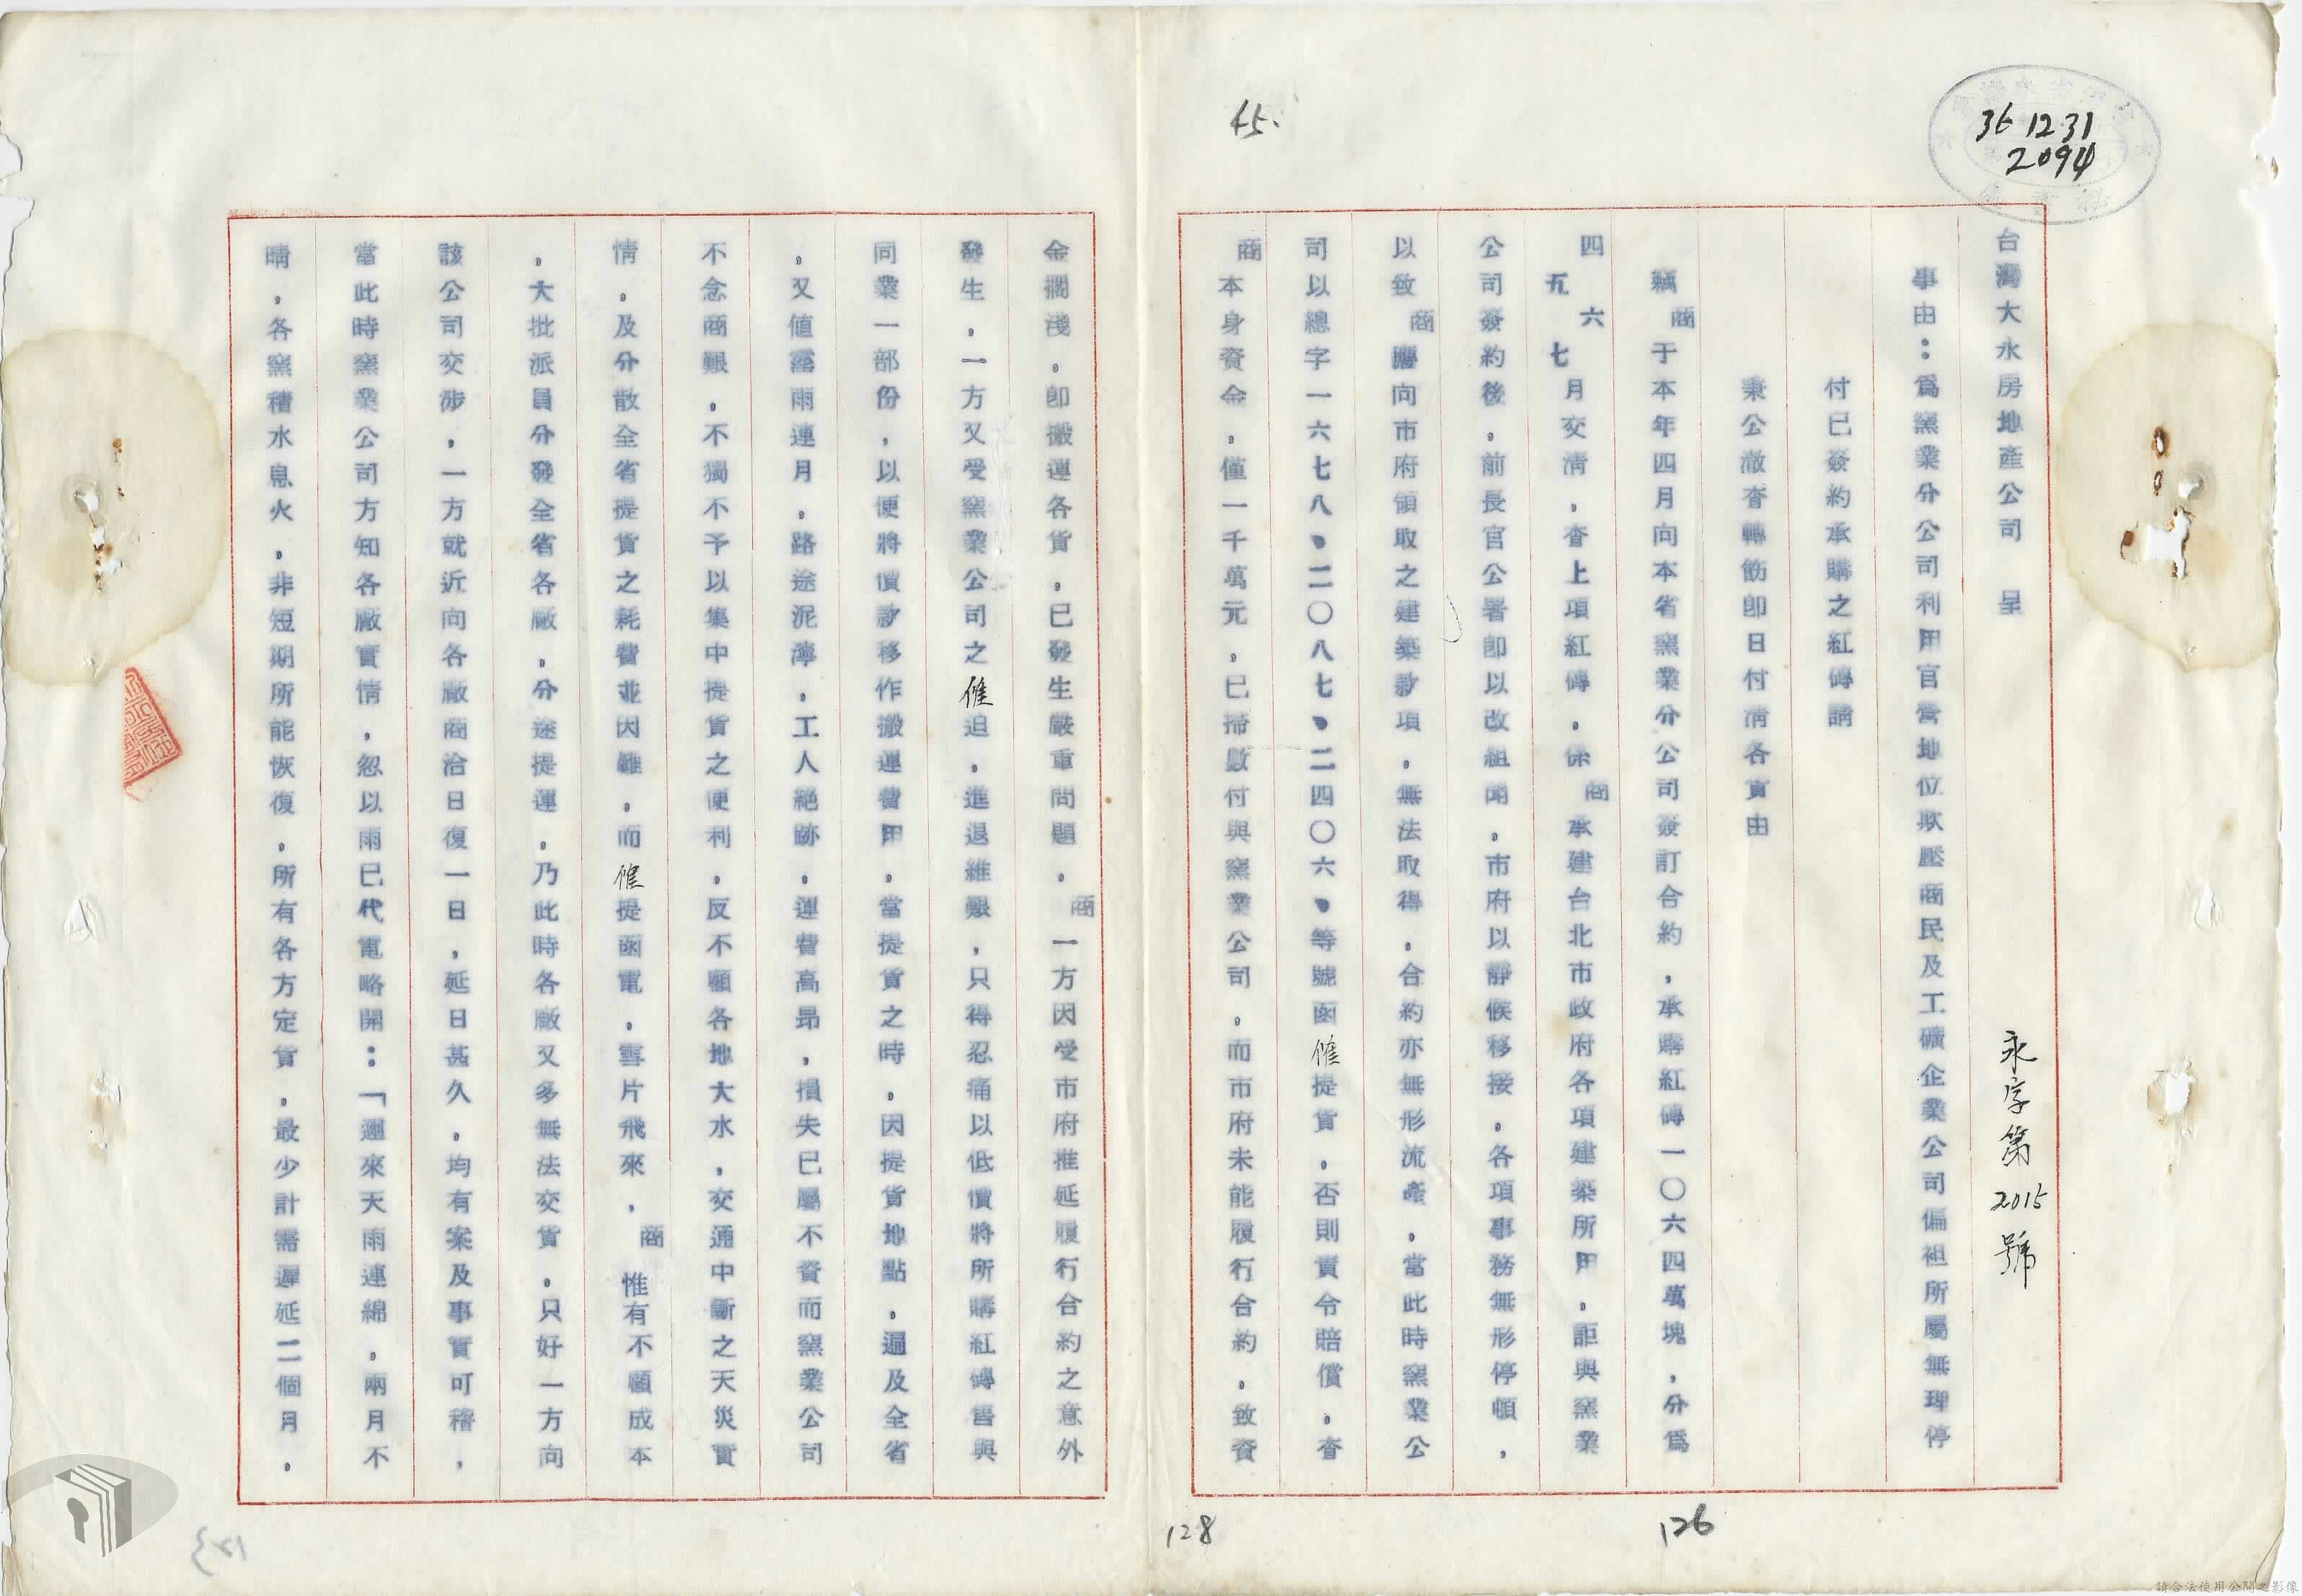 36 12 31
2094
45.
台灣大永房地產公司　呈
永字第2015號
事由：為窯業分公司利用官營地位欺壓商民及工礦企業公司偏袒所屬無理停
付已簽約承購之紅磚請
秉公澈查轉飭卽日付清各貨由
竊商于本年四月向本省窯業分公司簽訂合約，承購紅磚一〇六四萬塊，分為
四五六七月交清，查上項紅磚，係商承建台北市政府各項建築所用，詎與窯業
公司簽約後，前長官公署卽以改組聞，市府以靜候移接，各項事務無形停頓，
以致商應向市府領取之建築款項，無法取得，合約亦無形流產，當此時窯業公
司以總字一六七八、二〇八七、二四〇六、等號函催提貨，否則責令賠償，查
商本身資金，僅一千萬元，已掃數付與窯業公司，而市府未能履行合約，致資
金擱淺，卽搬運各貨，已發生嚴重問題，商一方因受市府推延履行合約之意外
發生，一方又受窯業公司之催迫，進退維艱，只得忍痛以低價將所購紅磚售與
同業一部份，以便將價款移作搬運費用，當提貨之時，因提貨地點，遍及全省
，又值霪雨連月，路途泥濘，工人絕跡，運費高昂，損失已屬不資而窯業公司
不念商艱，不獨不予以集中提貨之便利，反不顧各地大水，交通中斷之天災實
情，及分散全省提貨之耗費並困難，而催提函電，雪片飛來，商惟有不顧成本
，大批派員分發全省各廠，分途提運，乃此時各廠又多無法交貨，只好一方向
該公司交涉，一方就近向各廠商洽日復一日，延日甚久，均有案及事實可稽，
當此時窯業公司方知各廠實情，忽以雨巳代電略開：「邇來天雨連綿，兩月不
晴，各窯積水息火，非短期所能恢復，所有各方定貨，最少計需遲延二個月，
128
126
請合法使用公開之影像